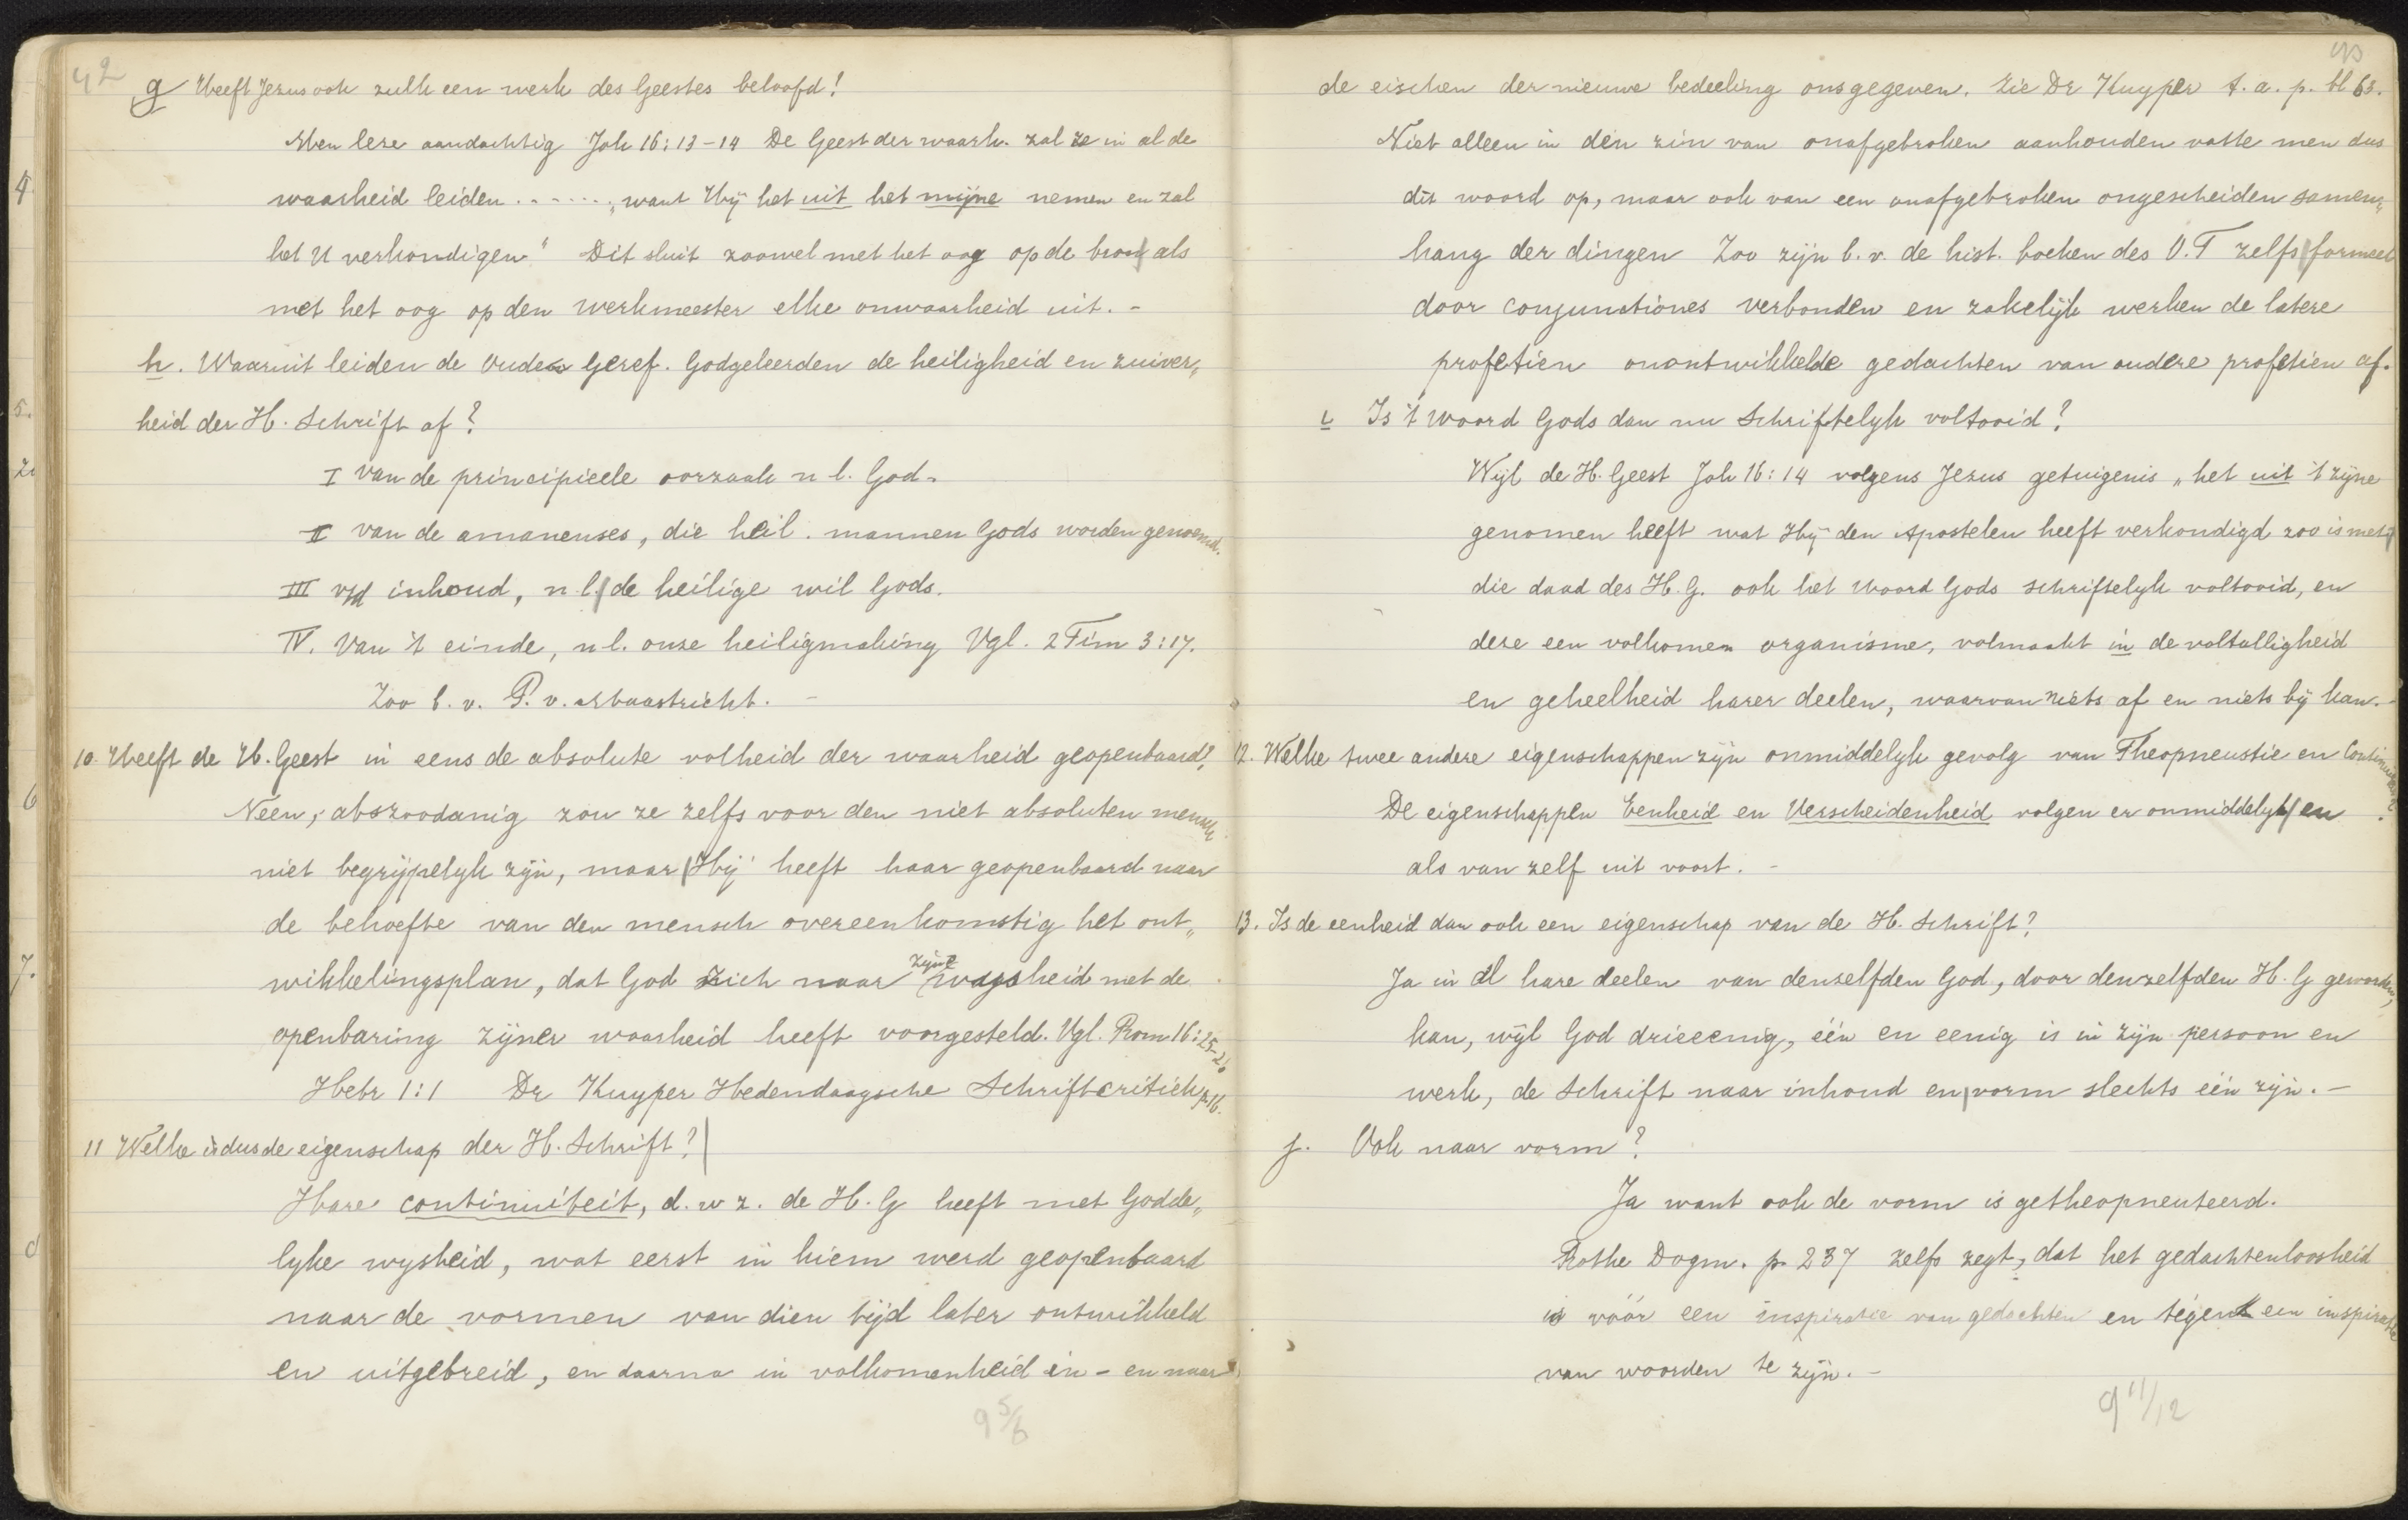 42
g Heeft Jezus ook zulk een werk des Geestes beloofd!
Men leze aandachtig Joh 16:13-14 De Geest der waarh. zal ze in al de
waarheid leiden . . . . . . , „want Hij het uit het mijne nemen en zal
het U verkondigen" Dit sluit zoowel met het oog op de bron als
met het oog op den werkmeester elke onwaarheid uit. -
h. Waaruit leiden de Oude Geref. Godgeleerden de heiligheid en zuiver„
heid der H. Schrift af?
I van de principieele oorzaak n l. God.
II van de amanenses, die heil. mannen Gods worden genoemd.
III v/d inhoud, n.l. de heilige wil Gods.
IV. Van 't einde, n l. onze heiligmaking Vgl. 2 Tim 3:17.
Zoo b. v. P. v. Maastricht. -
10. Heeft de H. Geest in eens de absolute volheid der waarheid geopenbaard?
Neen, alszoodanig zou ze zelfs voor den niet absoluten mensch
niet begrijpelyk zijn, maar Hij heeft haar geopenbaard naar
de behoefte van den mensch overeenkomstig het ont„
wikkelingsplan, dat God zich naar zijne wijsheid met de
openbaring zijner waarheid heeft voorgesteld. Vgl. Rom 16:25-26
Hebr 1:1 Dr Kuyper Hedendaagsche Schriftcritiek p. 16.
11 Welke is dus de eigenschap der H. Schrift?
Hare continuiteit, d. w z. de H. G heeft met Godde„
lyke wysheid, wat eerst in kiem werd geopenbaard
naar de vormen van dien tijd later ontwikkeld
en uitgebreid, en daarna in volkomenheid in - en naar
9 5/6
43
de eischen der nieuwe bedeeling ons gegeven. Zie Dr Kuyper t. a. p. bl 63.
Niet alleen in den zin van onafgebroken aanhouden vatte men dus
dit woord op, maar ook van een onafgebroken ongescheiden samen„
hang der dingen Zoo zijn b. v. de hist. boeken des O. T zelfs formeel
door conjunctiones verbonden en zakelijk werken de latere
profetien onontwikkelde gedachten van oudere profetien af.
i Is 't woord Gods dan nu Schriftelyk voltooid?
Wijl de H. Geest Joh 16:14 volgens Jezus getuigenis „het uit 't zijne
genomen heeft wat Hij den Apostelen heeft verkondigd zoo is met
die daad des H. G. ook het Woord Gods schriftelyk voltooid, en
deze een volkomen organisme, volmaakt in de voltalligheid
en geheelheid harer deelen, waarvan niets af en niets bij kan. -
12. Welke twee andere eigenschappen zijn onmiddelyk gevolg van Theopneustie en Continuiteit?
De eigenschappen Eenheid en Verscheidenheid volgen er onmiddelyk en
als van zelf uit voort. -
13. Is de eenheid dan ook een eigenschap van de H. Schrift?
Ja in al hare deelen van denzelfden God, door denzelfden H. G geworden,
kan, wijl God drieeenig, één en eenig is in zijn persoon en
werk, de Schrift naar inhoud en vorm slechts één zijn. -
j. Ook naar vorm?
Ja want ook de vorm is getheopneuteerd.
Rothe Dogm. p. 237 zelfs zegt, dat het gedachtenloosheid
is vóór een inspiratie van gedachten en tégen een inspiratie
van woorden te zijn. -
9 11/12